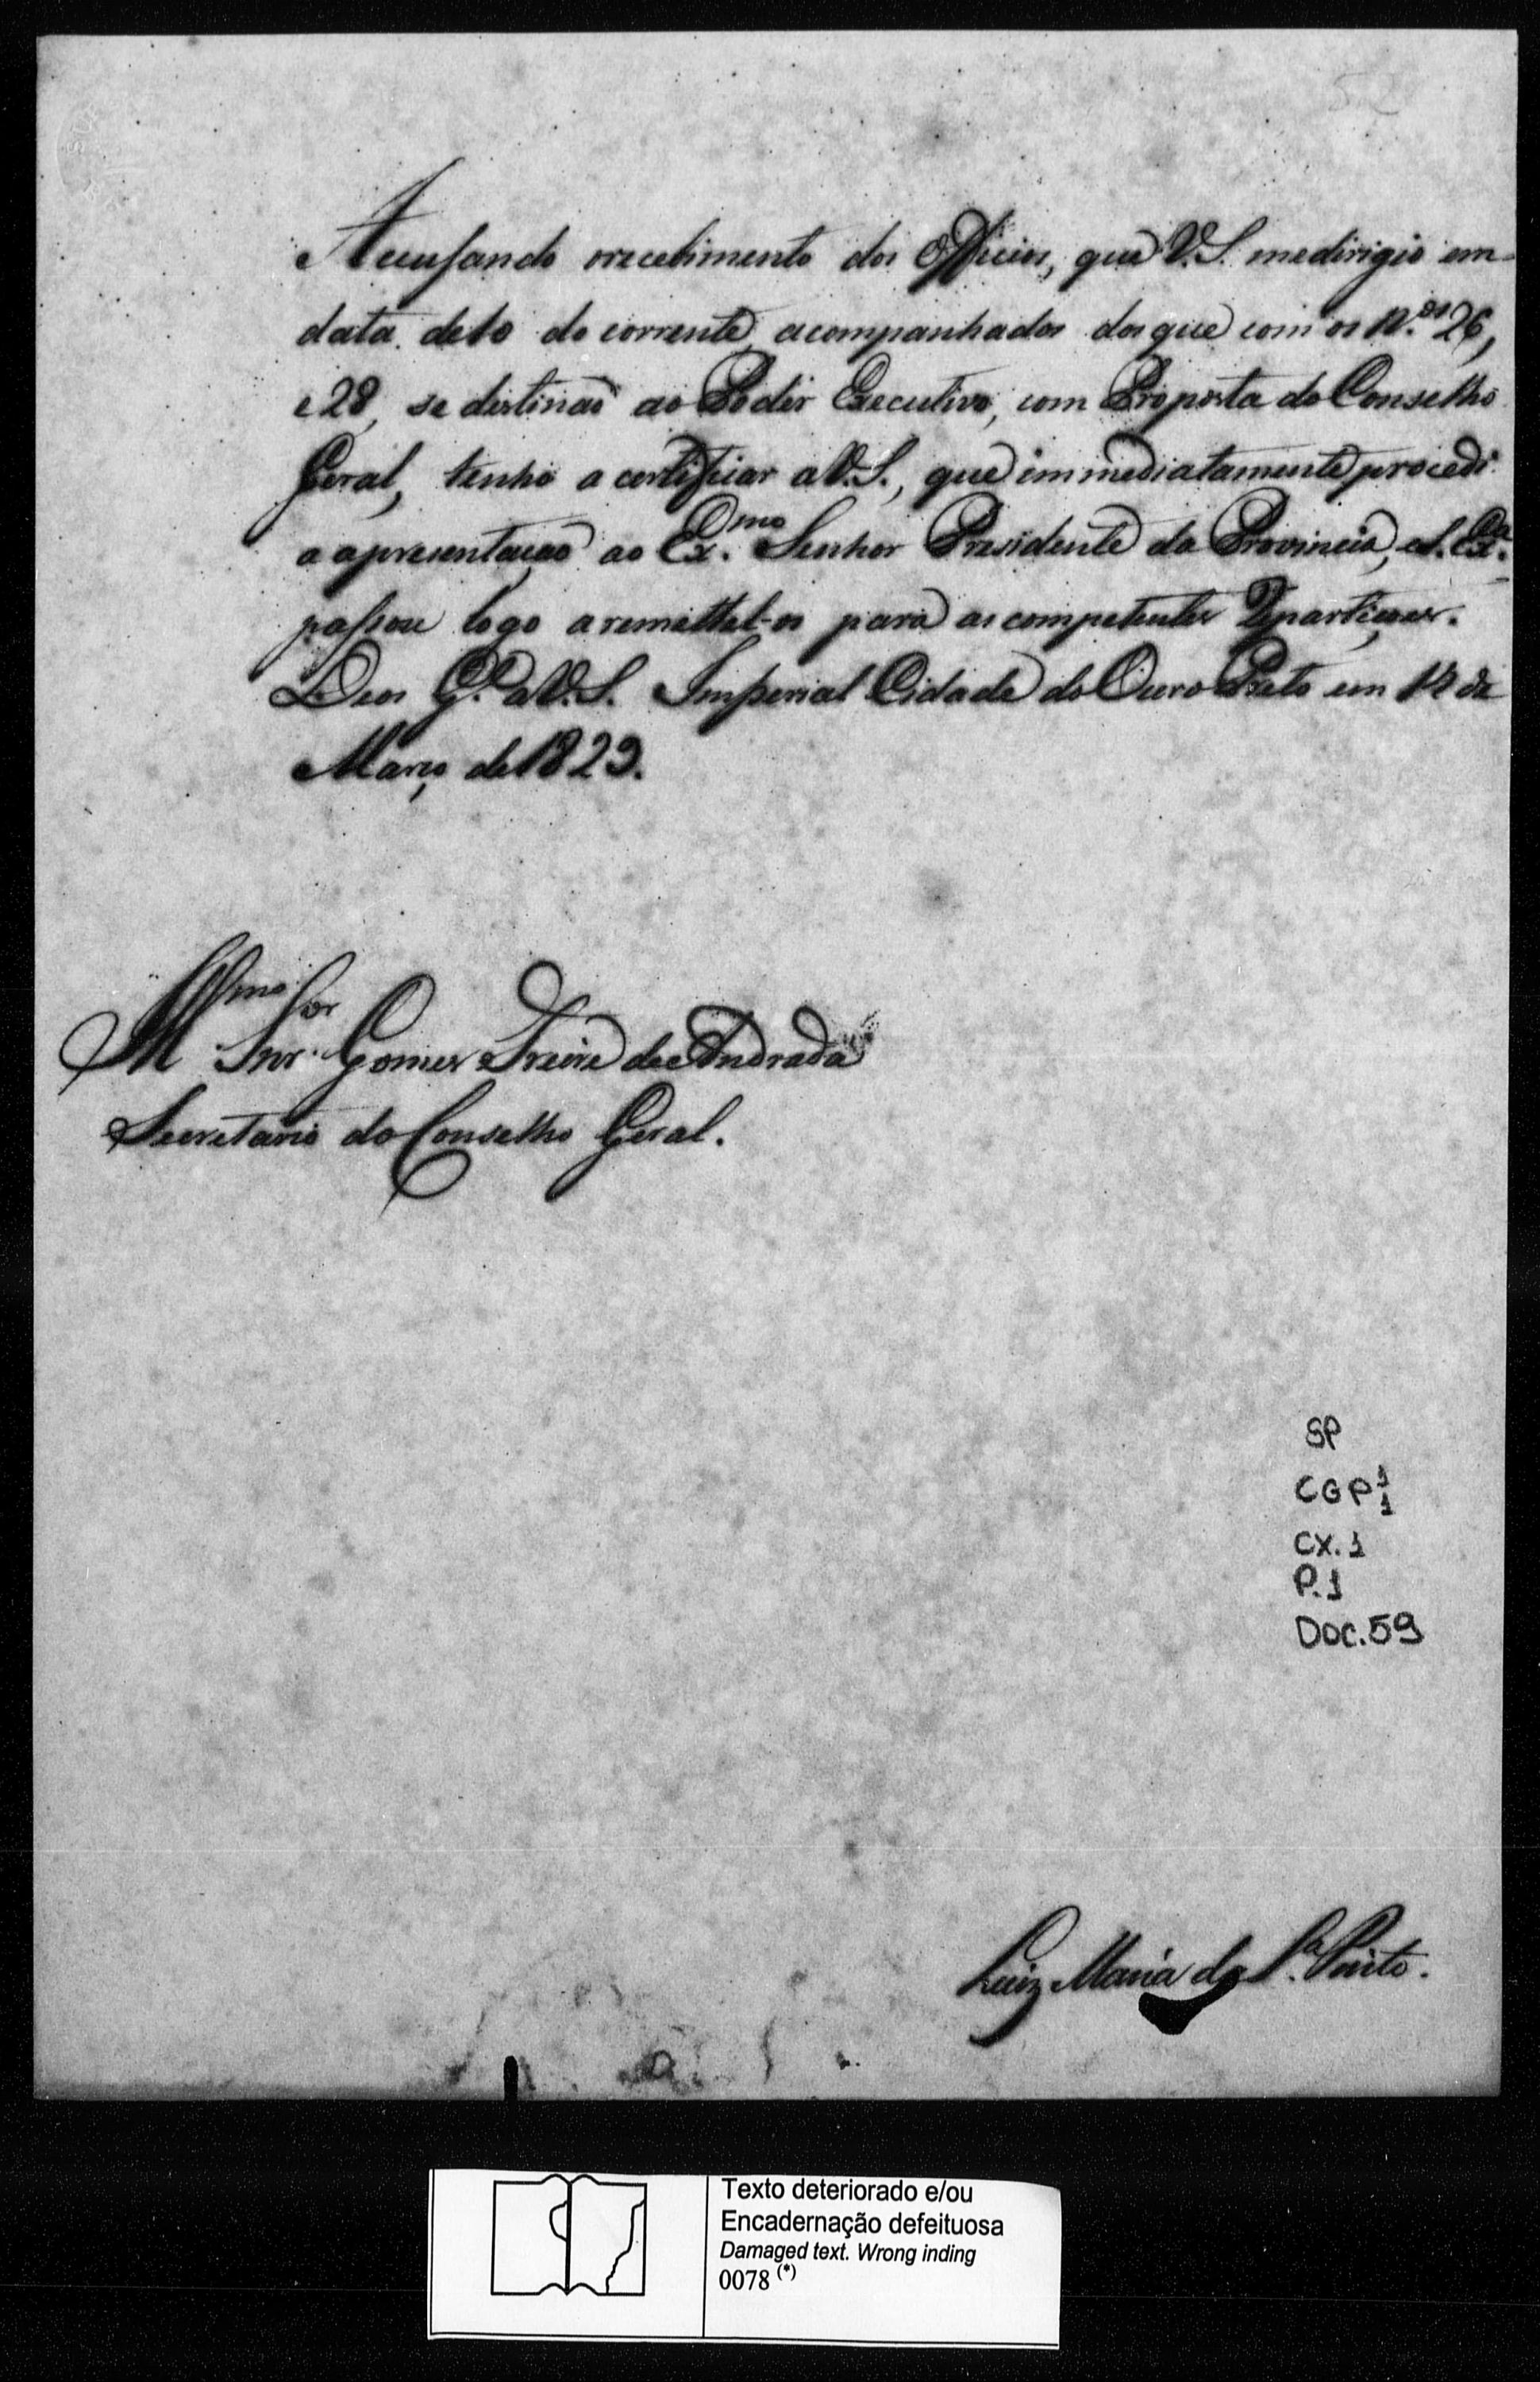 52
Accusando orecebimento dos Officios, que V.S. medirigio em
data de 10 do corrente, acompanhados dosque com os N.os 26,
e 28, se destinaõ ao Poder Executivo, com Proposta do Conselho
Geral, tenho a certificar aV.S., que immediatamente procedi
a apresentaçaõ ao Ex.mo Senhor Presidente da Provincia, eS.Ex.a
passou logo aremettel-os para as competentes Repartiçoes.
Deos G.e aV.S. Imperial Cidade do Ouro Preto em 12 de
Março de 1829.
Illmo Sor
Gomes Freire de Andrada
Secretario do Conselho Geral.
SP
CGP 1/1
CX.1
P.1
DOC.59
Luiz Maria da S.a Pinto.
Texto deteriorado e/ou
Encadernação defeituosa
Damaged text. Wrong inding
0078 (*)